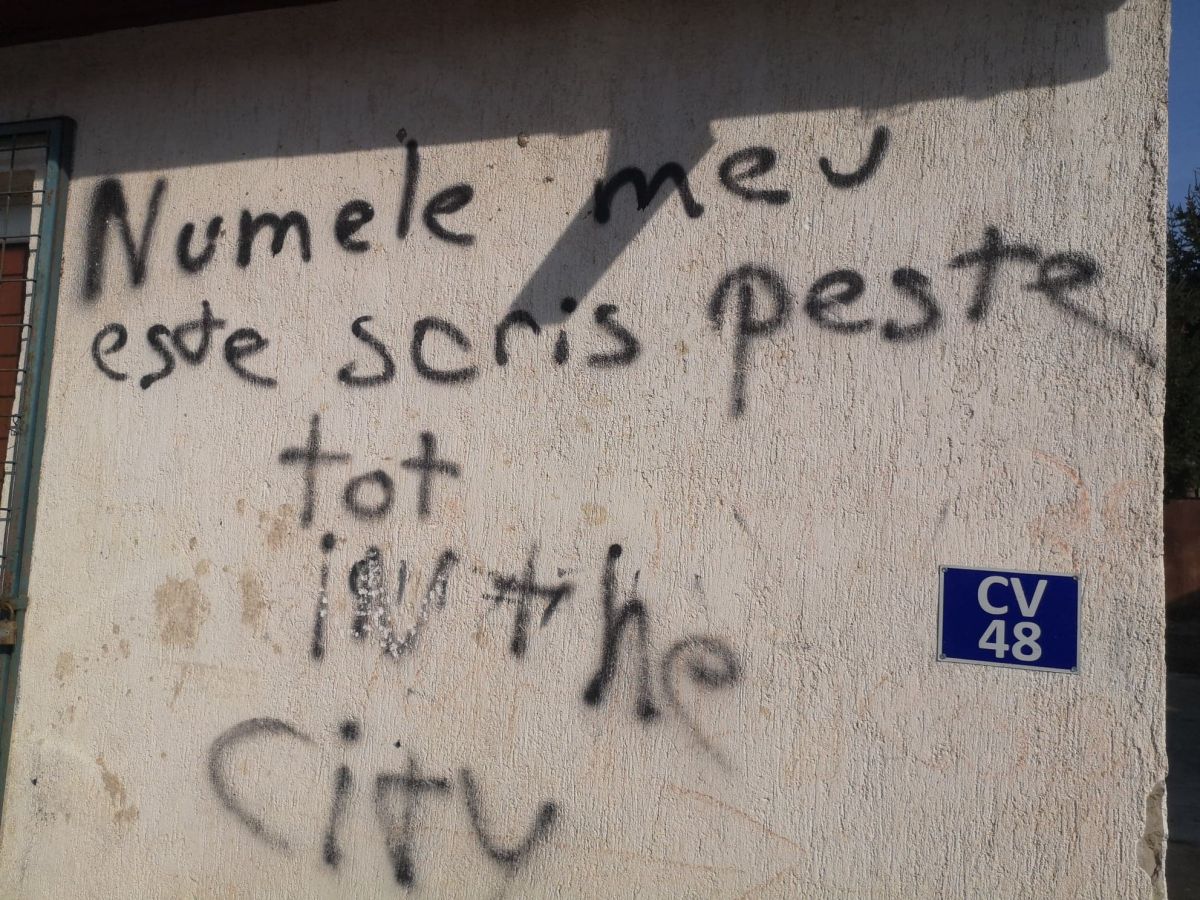 Numele meu
este scris peste
tot
in the
City
CV
48